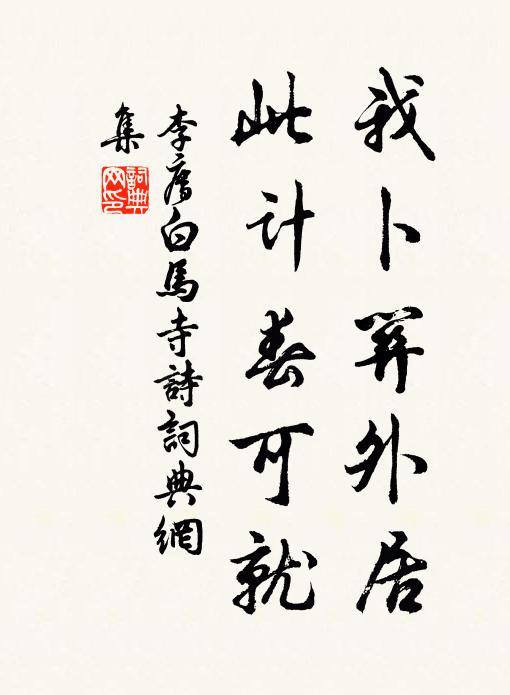 我卜外居
此計春可就
李廌白馬寺詩詞典網
集
詞典网印